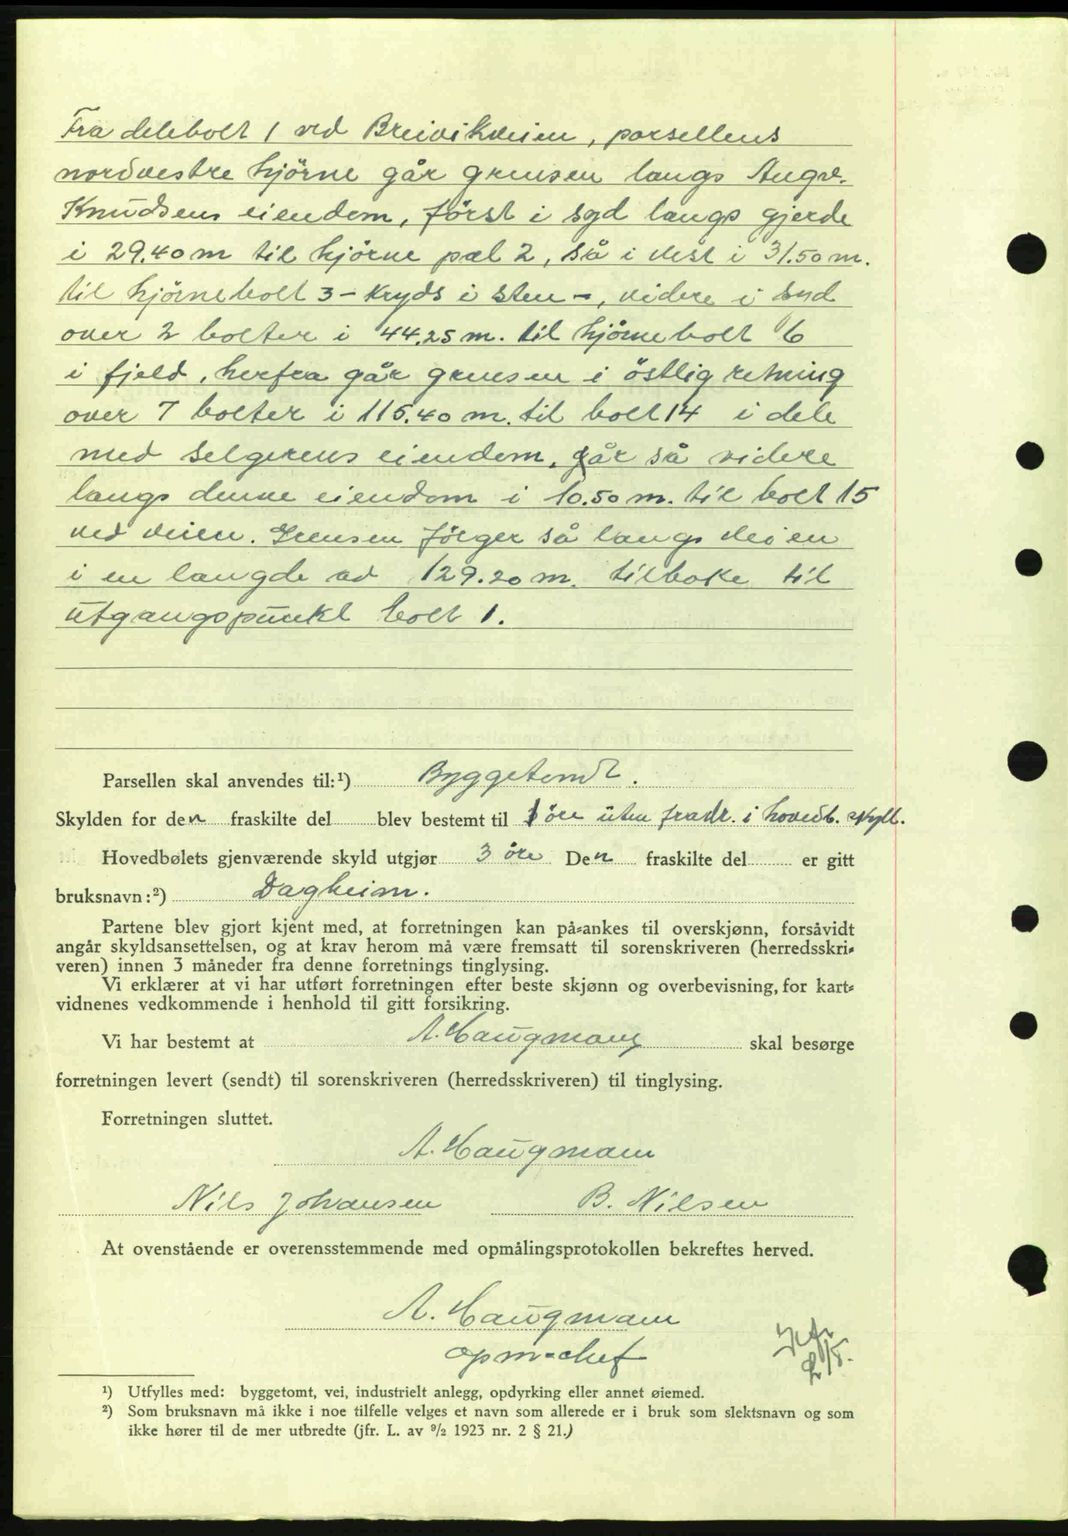 Fra delebolt 1 ved Breivikveien, parsellens
nordvestre hjörne går grensen langs Augu.
Knudsens eiendom, först i syd langs gjerde
i 29.40 m til hjörne pæl 2, så i vest i 31.50 m.
til hjörnebolt 3 - kryds i sten -, videre i syd
over 2 bolter i 44.25 m. til hjörnebolt 6
i fjeld, herfra går grensen i östlig retning
over 7 bolter i 115.40 m. til bolt 14 i dele
med selgerens eiendom, går så videre
langs denne eiendom i 10.50 m. til bolt 15
ved veien. Grensen fölger så langs veien
i en langde av 129.20 m. tilbake til
utgangspunkt bolt 1.
Parsellen skal anvendes til:¹) Byggetomt.
Skylden for den fraskilte del blev bestemt til 1 öre uten fradr. i hovedb. skyld.
Hovedbølets gjenværende skyld utgjør 3 öre Den fraskilte del er gitt
bruksnavn:²) Dagheim.
Partene blev gjort kjent med, at forretningen kan på-ankes til overskjønn, forsåvidt
angår skyldsansettelsen, og at krav herom må være fremsatt til sorenskriveren (herredsskri-
veren) innen 3 måneder fra denne forretnings tinglysing.
Vi erklærer at vi har utført forretningen efter beste skjønn og overbevisning, for kart-
vidnenes vedkommende i henhold til gitt forsikring.
Vi har bestemt at A. Haugmann skal besørge
forretningen levert (sendt) til sorenskriveren (herredsskriveren) til tinglysing.
Forretningen sluttet.
A. Haugmann
Nils Johansen B. Nilsen
At ovenstående er overensstemmende med opmålingsprotokollen bekreftes herved.
A. Haugmann
opm-chef
¹) Utfylles med: byggetomt, vei, industrielt anlegg, opdyrking eller annet øiemed.
²) Som bruksnavn må ikke i noe tilfelle velges et navn som allerede er i bruk som slektsnavn og som
ikke hører til de mer utbredte (jfr. L. av 9/2 1923 nr. 2 § 21.)